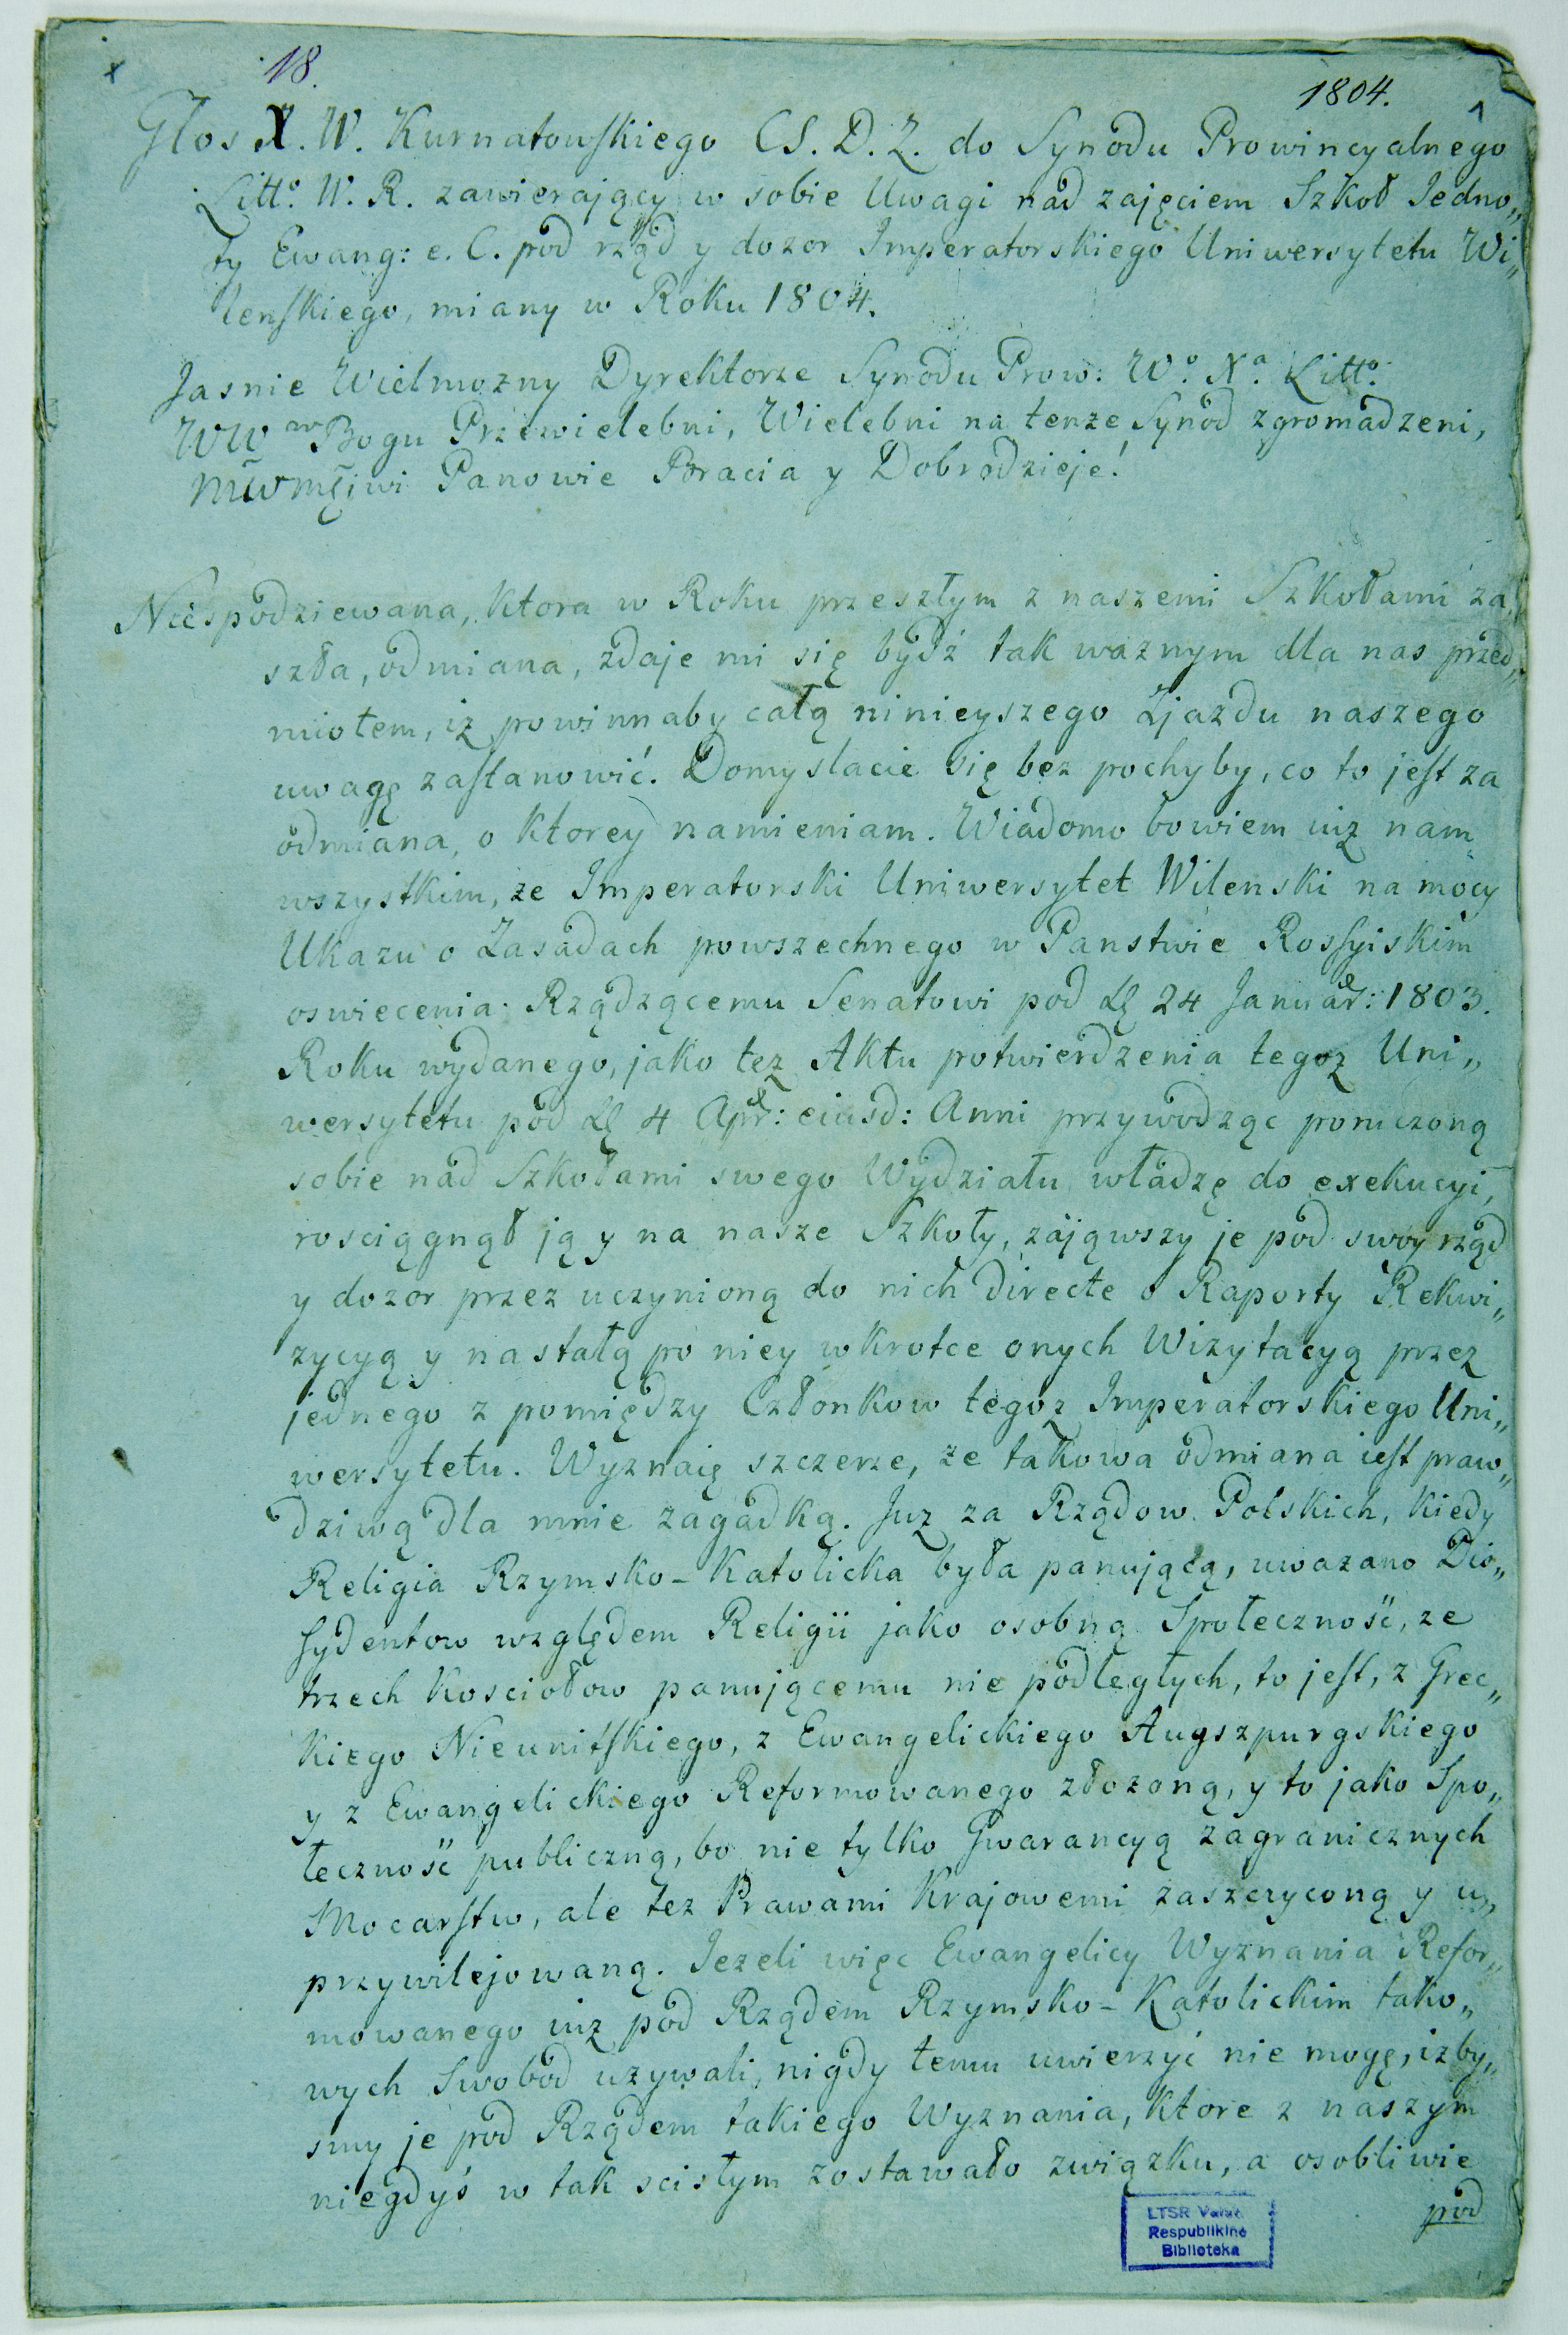 18.
1804.
1
Głos X. W. Kurnatowskiego CS. D. Z. do Synodu Prowincyalnego
Litto. W. R. zawierający w sobie Uwagi nad zajęciem Szkoł Jedno„
ty Ewang: e. C. pod rząd y dozor Imperatorskiego Uniwersytetu Wi„
lenskiego, miany w Roku 1804.
Jasnie Wielmozny Dyrektorze Synodu Prow: Wo. Xa. Litto.
WW w Bogu Przewielebni, Wielebni na tenze Synod zgromadzeni,
Panowie Bracia y Dobrodzieje!
Niespodziewana, ktora w Roku przeszłym z naszemi Szkołami za„
szła, odmiana, zdaje mi się bydź tak waznym dla nas przed„
miotem, iz powinnaby całą ninieyszego Zjazdu naszego
uwagę zastanowić. Domyslacie się bez pochyby, co to jest za
odmiana, o ktorey namieniam. Wiadomo bowiem iuz nam
wszystkim, ze Imperatorski Uniwersytet Wilenski na mocy
Ukazu o Zasadach powszechnego w Panstwie Rossyiskim
oswiecenia Rządzącemu Senatowi pod 24 Januar: 1803.
Roku wydanego, jako tez Aktu potwierdzenia tegoz Uni„
wersytetu pod 4 Apr: eiusd: Anni przywodząc poruczoną
sobie nad Szkołami swego Wydziału władzę do exekucyi,
rosciągnął ją y na nasze Szkoły, zająwszy je pod swoy rząd
y dozor przez uczynioną do nich directe o Raporty Rekwi„
zycyą y nastałą po niey wkrotce onych Wizytacyą przez
jednego z pomiędzy Członkow tegoz Imperatorskiego Uni„
wersytetu. Wyznaię szczerze, ze takowa odmiana iest praw„
dziwą dla mnie zagadką. Juz za Rządow Polskich, kiedy
Religia Rzymsko-Katolicka była panującą, uwazano Dis„
sydentow względem Religii jako osobną Społeczność, ze
trzech Kosciołow panującemu nie podległych, to jest, z Grec„
kiego Nieunitskiego, z Ewangelickiego Augszpurgskiego
y z Ewangelickiego Reformowanego złozoną, y to jako Spo„
łeczność publiczną, bo nie tylko Gwarancyą zagranicznych
Mocarstw, ale tez Prawami Krajowemi zaszczyconą y u„
przywilejowaną. Jezeli więc Ewangelicy Wyznania Refor„
mowanego iuz pod Rządem Rzymsko-Katolickim tako„
wych Swobod uzywali, nigdy temu uwierzyć nie mogę, izby„
smy je pod Rządem takiego Wyznania, ktore z naszym
niegdyś w tak scisłym zostawało związku, a osobliwie
pod
LTSR Valst.
Respublikinė
Biblioteka